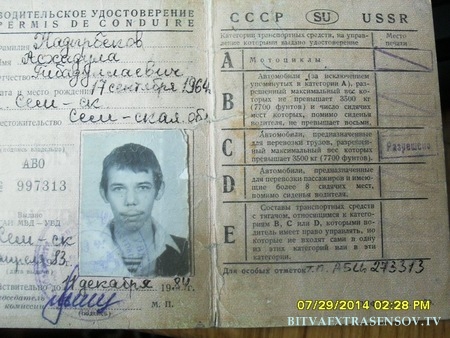 ВОДИТЕЛЬСКОЕ УДОСТОВЕРЕНИЕ
PERMIS DE CONDUIRE
Фамилия Кадырбеков
Отчество Гибадуллаевич
Дата и место рождения 17 сентября 1964
г. Сем-ск
местожительство Сем-ская обл
АВО
№ 997313
Выдано
ГАИ-МВД-УВД
Сем-ск
Действительно до
декабря
М. П.
(подпись)
СССР SU USSR
Категории транспортных средств, на управление которыми выдано удостоверение
Место печати
A Мотоциклы
B Автомобили (за исключением упомянутых в категории А), разрешенный максимальный вес которых не превышает 3500 кг (7700 фунтов) и число сидячих мест которых, помимо сиденья водителя, не превышает восьми.
C Автомобили, предназначенные для перевозки грузов, разрешенный максимальный вес которых превышает 3500 кг (7700 фунтов).
Разрешено
D Автомобили, предназначенные для перевозки пассажиров и имеющие более 8 сидячих мест, помимо сиденья водителя.
E Составы транспортных средств с тягачом, относящимся к категориям В, С или D, которыми водитель имеет право управлять, но которые не входят сами в одну из этих категорий или в эти категории.
Для особых отметок т.п. АБЦ 273313
07/29/2014 02:28 PM
BITVAEXTRASENSOV.TV